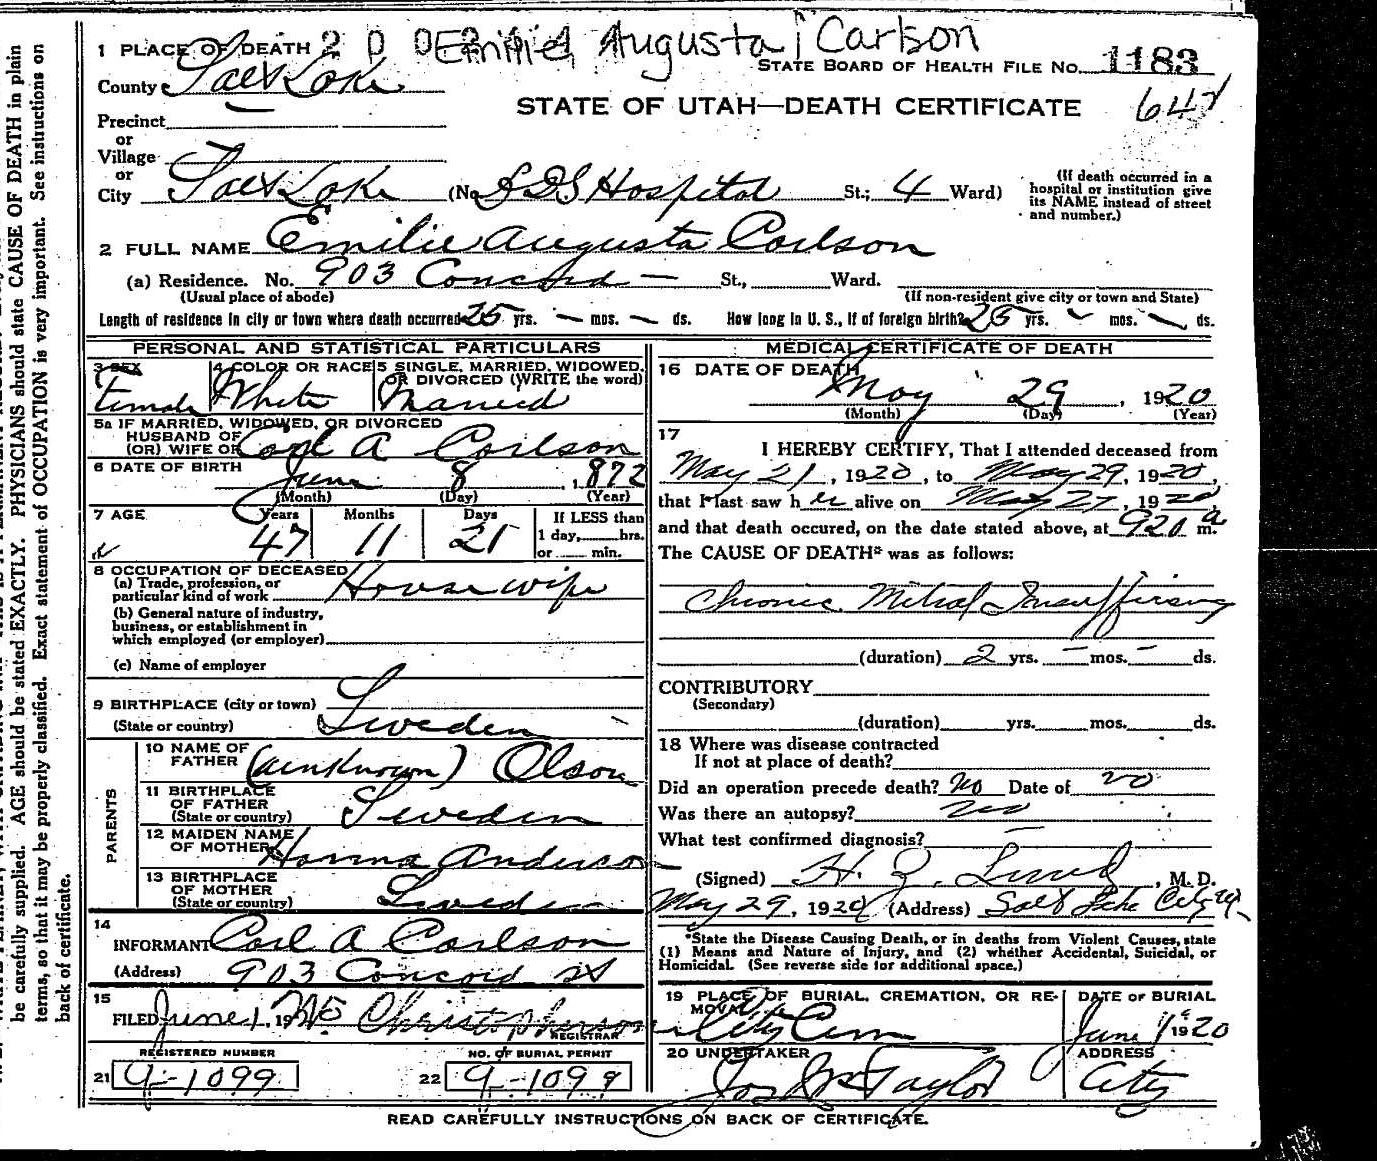 Emilie Augusta Carlson
1 PLACE OF DEATH
STATE BOARD OF HEALTH FILE No. 1183
County Salt Lake
STATE OF UTAH—DEATH CERTIFICATE
Precinct
or
Village
or
City Salt Lake (No. LDS Hospital St.; 4 Ward)
(If death occurred in a hospital or institution give its NAME instead of street and number.)
2 FULL NAME Emilie Augusta Carlson
(a) Residence. No. 903 Concord — St., Ward.
(Usual place of abode) (If non-resident give city or town and State)
Length of residence in city or town where death occurred 25 yrs. — mos. — ds. How long in U. S., if of foreign birth? 25 yrs. mos. ds.
PERSONAL AND STATISTICAL PARTICULARS
3 SEX 4 COLOR OR RACE 5 SINGLE, MARRIED, WIDOWED, OR DIVORCED (WRITE the word)
Female White Married
5a IF MARRIED, WIDOWED, OR DIVORCED
HUSBAND OF
(OR) WIFE OF Carl A Carlson
6 DATE OF BIRTH
June 8, 1872
(Month) (Day) (Year)
7 AGE Years Months Days If LESS than
1 day, hrs.
or min.
47 11 21
8 OCCUPATION OF DECEASED
(a) Trade, profession, or
particular kind of work Housewife
(b) General nature of industry,
business, or establishment in
which employed (or employer)
(c) Name of employer
9 BIRTHPLACE (city or town)
(State or country) Sweden
PARENTS
10 NAME OF FATHER (unknown) Olson
11 BIRTHPLACE OF FATHER
(State or country) Sweden
12 MAIDEN NAME OF MOTHER Hanna Anderson
13 BIRTHPLACE OF MOTHER
(State or country) Sweden
14
INFORMANT Carl A Carlson
(Address) 903 Concord St
15
FILED June 1, 19 Christopherson
REGISTRAR
REGISTERED NUMBER NO. OF BURIAL PERMIT
21 9-1099 22 9-1099
MEDICAL CERTIFICATE OF DEATH
16 DATE OF DEATH
May 29, 1920
(Month) (Day) (Year)
17
I HEREBY CERTIFY, That I attended deceased from
May 21, 1920, to May 29, 1920,
that I last saw her alive on May 27, 1920
and that death occured, on the date stated above, at 920 a m.
The CAUSE OF DEATH* was as follows:
Chronic Mitral Insufficiency
(duration) 2 yrs. — mos. — ds.
CONTRIBUTORY
(Secondary)
(duration) yrs. mos. ds.
18 Where was disease contracted
If not at place of death?
Did an operation precede death? No Date of no
Was there an autopsy? no
What test confirmed diagnosis? —
(Signed) H. Z. Lund, M. D.
May 29, 1920 (Address) Salt Lake City
*State the Disease Causing Death, or in deaths from Violent Causes, state
(1) Means and Nature of Injury, and (2) whether Accidental, Suicidal, or
Homicidal. (See reverse side for additional space.)
19 PLACE OF BURIAL, CREMATION, OR REMOVAL DATE OF BURIAL
City Cem June 1 1920
20 UNDERTAKER ADDRESS
Jos Wm Taylor City
READ CAREFULLY INSTRUCTIONS ON BACK OF CERTIFICATE.
be carefully supplied. AGE should be stated EXACTLY. PHYSICIANS should state CAUSE OF DEATH in plain
terms, so that it may be properly classified. Exact statement of OCCUPATION is very important. See instructions on
back of certificate.